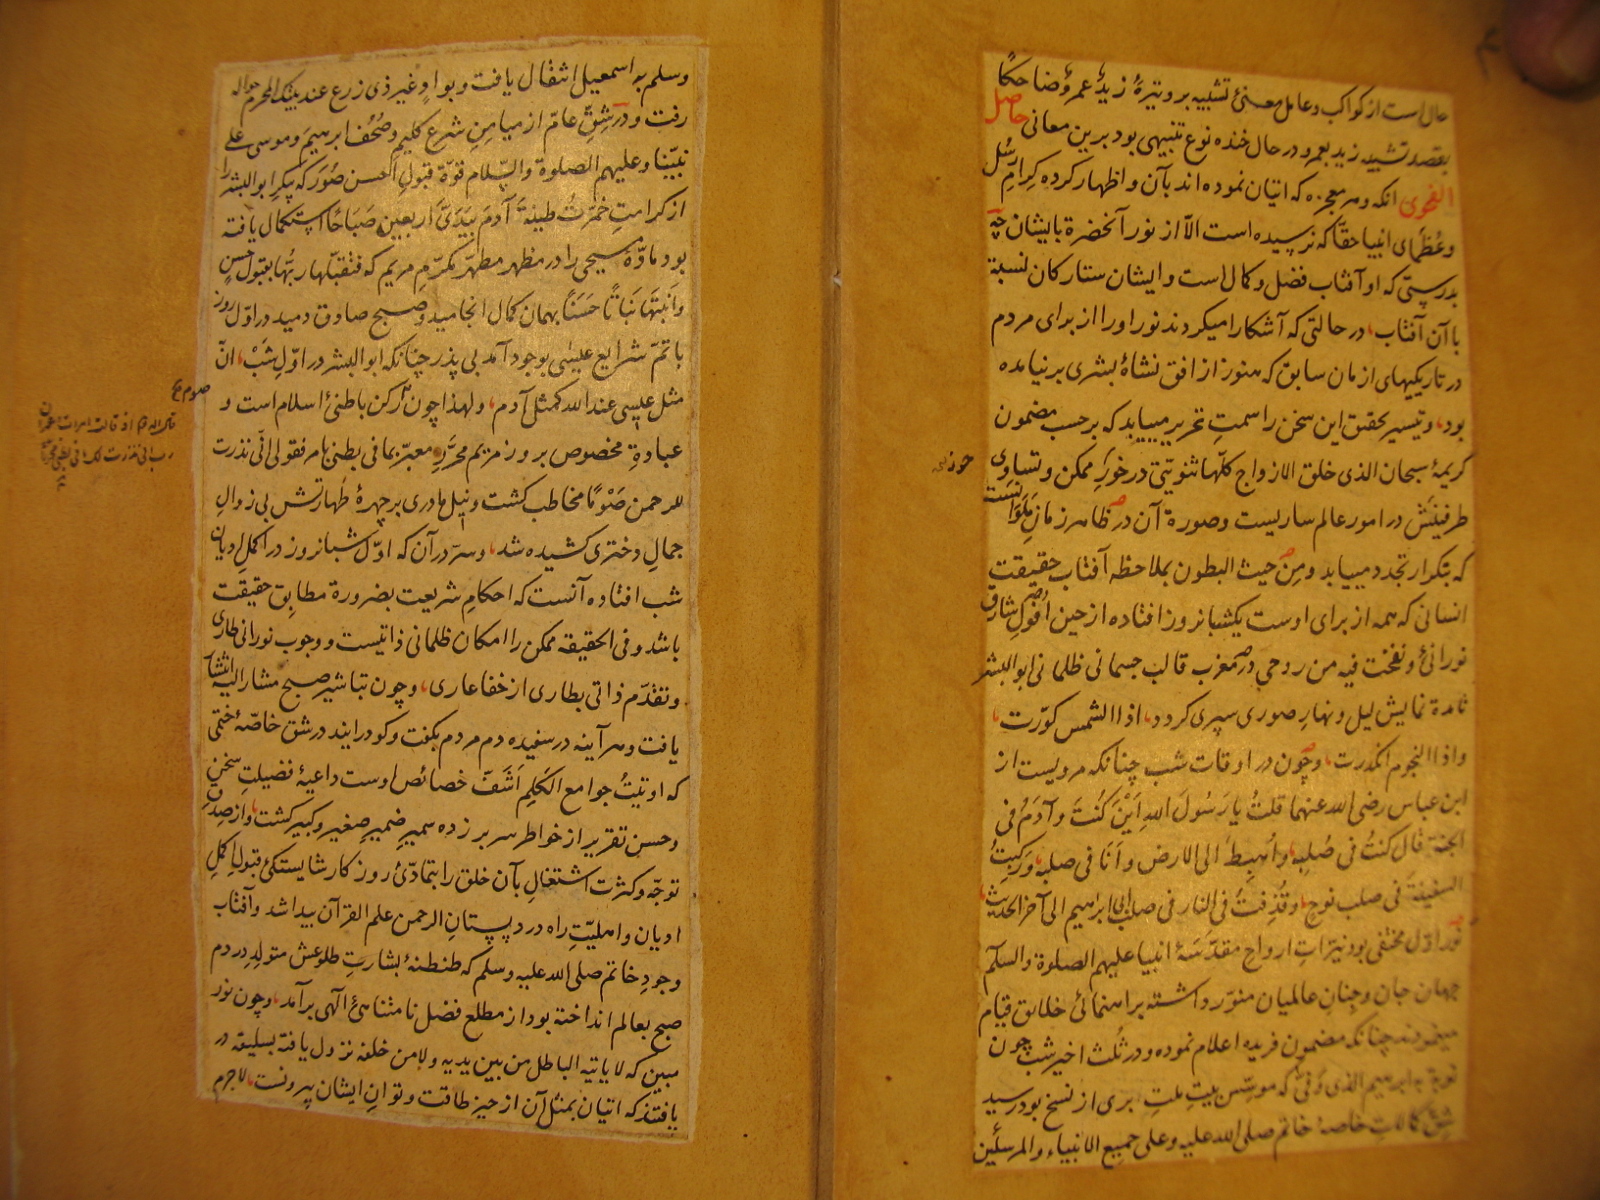 حال است از کواکب و عامل معنئ تشبیه بر وتیرهٔ زیدٌ عمروٌ ضاحکا
بقصد تشبیه زید بعمرو در حال خنده نوع تنبیهی بود برین معانی حاصل
الفحوی انکه و هر معجزه که اتیان نموده اند بآن و اظهار کرده کِرامِ رُسُل
و عُظَمای انبیا حقّا که نرسیده است الّا از نور آنحضرة بایشان چه
بدرستی که او آفتاب فضل و کمال است و ایشان ستارکان لنسبة
با آن آفتاب، در حالتی که آشکارا میکردند نور او را از برای مردم
در تاریکیهای ازمان سابق که هنوز از افق نشاهٔ بشری بر نیامده
بود، و تیسیر تحقیق این سخن را سمتِ تحریر مییابد که بر حسب مضمون
کریمهٔ سبحان الذی خلق الازواج کلّها ثنویّتی در خورِ ممکن و تساوِی
طرفینَش در امور عالم ساریست و صورة آن در ظاهر زمان مَلَوَانست
که بتکرار تجدد مییابد و مِن حیث البطون بملاحظه آفتاب حقیقت
انسانی که همه از برای اوست یکشبانروز افتاده از حین اُفولِ شارق
نورانئ و نفخت فیه من روحی در مغرب قالب جسمانی ظلمانی ابو البشر
تا مدة نمایش لیل و نهارِ صوری سپری کردد، اذا الشمس کوّرت،
و اذا النجوم انکدرت، و چون در اوقات شب چنانکه مرویست از
ابن عباس رضی الله عنهما قلتُ یا رَسُولَ اللهِ اَیْنَ کُنتَ وَ آدَمُ فی
الجنة قال کنتُ فی صُلبِه، و اُهبِطَ الی الارض و اَنَا فی صلبه، وَ رکبتُ
السفینةَ فی صلب نوحٍ، و قُذِفتُ فی النار فی صلب ابراهیم الی آخر الحدیث،
نورِ اوّل مختفی بود نیّراتِ ارواح مقدّسهٔ انبیا علیهم الصلوة والسلم
جهان جان و جِنانِ عالمیان منوّر داشته براهنمائی خلایق قیام
مینمودند چنانکه مضمون فریده اعلام نموده و در ثلث اخیر شب چون
نوبة به ابرهیم الذی وفّی که موسّس بیتِ ملّتِ بری از نسخ بود رسید
شقِّ کمالاتِ خاصهٔ خاتم صلی الله علیه و علی جمیع الانبیاء والمرسلین
وسلم به اسمعیل انتقال یافت و بوادٍ غیر ذی زرع عند بیتک المحرم حواله
رفت و در شِقِّ عامّ از میامِنِ شرع کلیم و صُحُف ابرهیم و موسی علی
نبیّنا و علیهم الصلوة والسّلام قوّة قبول احسن صُوَر که پیکرِ ابو البشر را
از کرامتِ خمّرْتُ طینةَ آدمَ بِیَدَیَّ اربعین صَبَاحًا استکمال یافته
بود مادّهٔ مسیحی را در مَظهر مطهّر مکرّمِ مریم که فتقبّلها ربّها بقبول حسنٍ
وَ اَنبَتَهَا نَبَاتًا حَسَنًا بهمان کمال انجامید و صبح صادق دمید در اوّل روز
با تمّ شرایع عیسی بوجود آمد بی پذر چنانکه ابو البشر در اوّلِ شَبْ، انّ
مثل عیسی عند الله کمثل آدم، و لهذا چون رُکن باطنئ اسلام است و
عبادةِ مخصوص بروز مریم محرَّرِ معبّر بما فی بطنی با مر فقولی انّی نذرت
للرحمن صَوْمًا مخاطب کشت و نیل مادری بر چهرهٔ طَهارتش بی زوالِ
جمالِ دختری کشیده شد، و سرّ در آن که اوّل شبانروز در اکملِ ادیان
شب افتاده آنست که احکامِ شریعت بضرورة مطابق حقیقت
باشد و فی الحقیقه ممکن را امکان ظلمانی ذاتیست و وجوب نورانی طاری
و تقدّم ذاتی بطاری از خفا عاری، و چون تباشیرِ صبح مشار الیه انتشار
یافت و هر آینه در سفیده دم مردم بکفت و کو در ایند در شق خاصّهٔ ختمی
که اوتیتُ جوامع الکَلِم اَشَفِّ خصائص اوست داعیهٔ فضیلتِ سخن
و حسن تقریر از خواطر سر بر زده سمیرِ ضمیرِ صغیر و کبیر کشت، و از صدقِ
توجّه و کثرت اشتغال بآن خلق را بتمادّئ روز کار شایستکئ قبول اکملِ
ادیان و اهلیّتِ راه در دبستانِ الرحمن علم القرآن پیدا شد و آفتاب
وجودِ خاتم صلی الله علیه وسلم که طنطنهٔ بشارتِ طلوعش متولدِ در دم
صبح بعالم انداخته بود از مطلع فضل نا متناهئ آلهی برآمد، و چون نور
مبین که لا یاتیه الباطل من بین یدیه ولا من خلفه نزول یافة بسلیقه در
یافتند که اتیان بمثل آن از حیز طاقت و توانِ ایشان بیرونست، لاجرم
صوم ع
قال الله تع اذ قالت امرات عمران
رب انی نذرت لک ما فی بطنی محررا